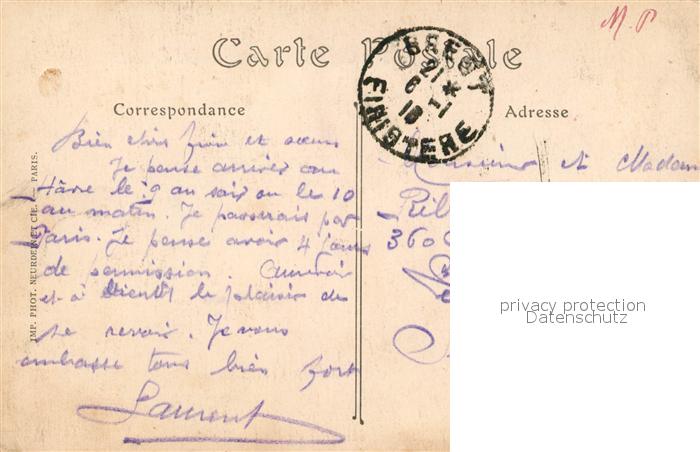 M. P
Carte Postale
BREST
21
6 * 1
18
FINISTERE
Correspondance
Adresse
Bien chers frère et sœur
Je pense arriver au
Hâvre le 9 au soir ou le 10
au matin. Je passerais par
Paris. Je pense avoir 4 jours
de permission. Aurevoir
et à bientôt le plaisir de
se revoir. Je vous
embrasse tous bien fort
Laurent
Monsieur et Madam
360
IMP. PHOT. NEURDEIN ET CIE. PARIS.
privacy protection
Datenschutz